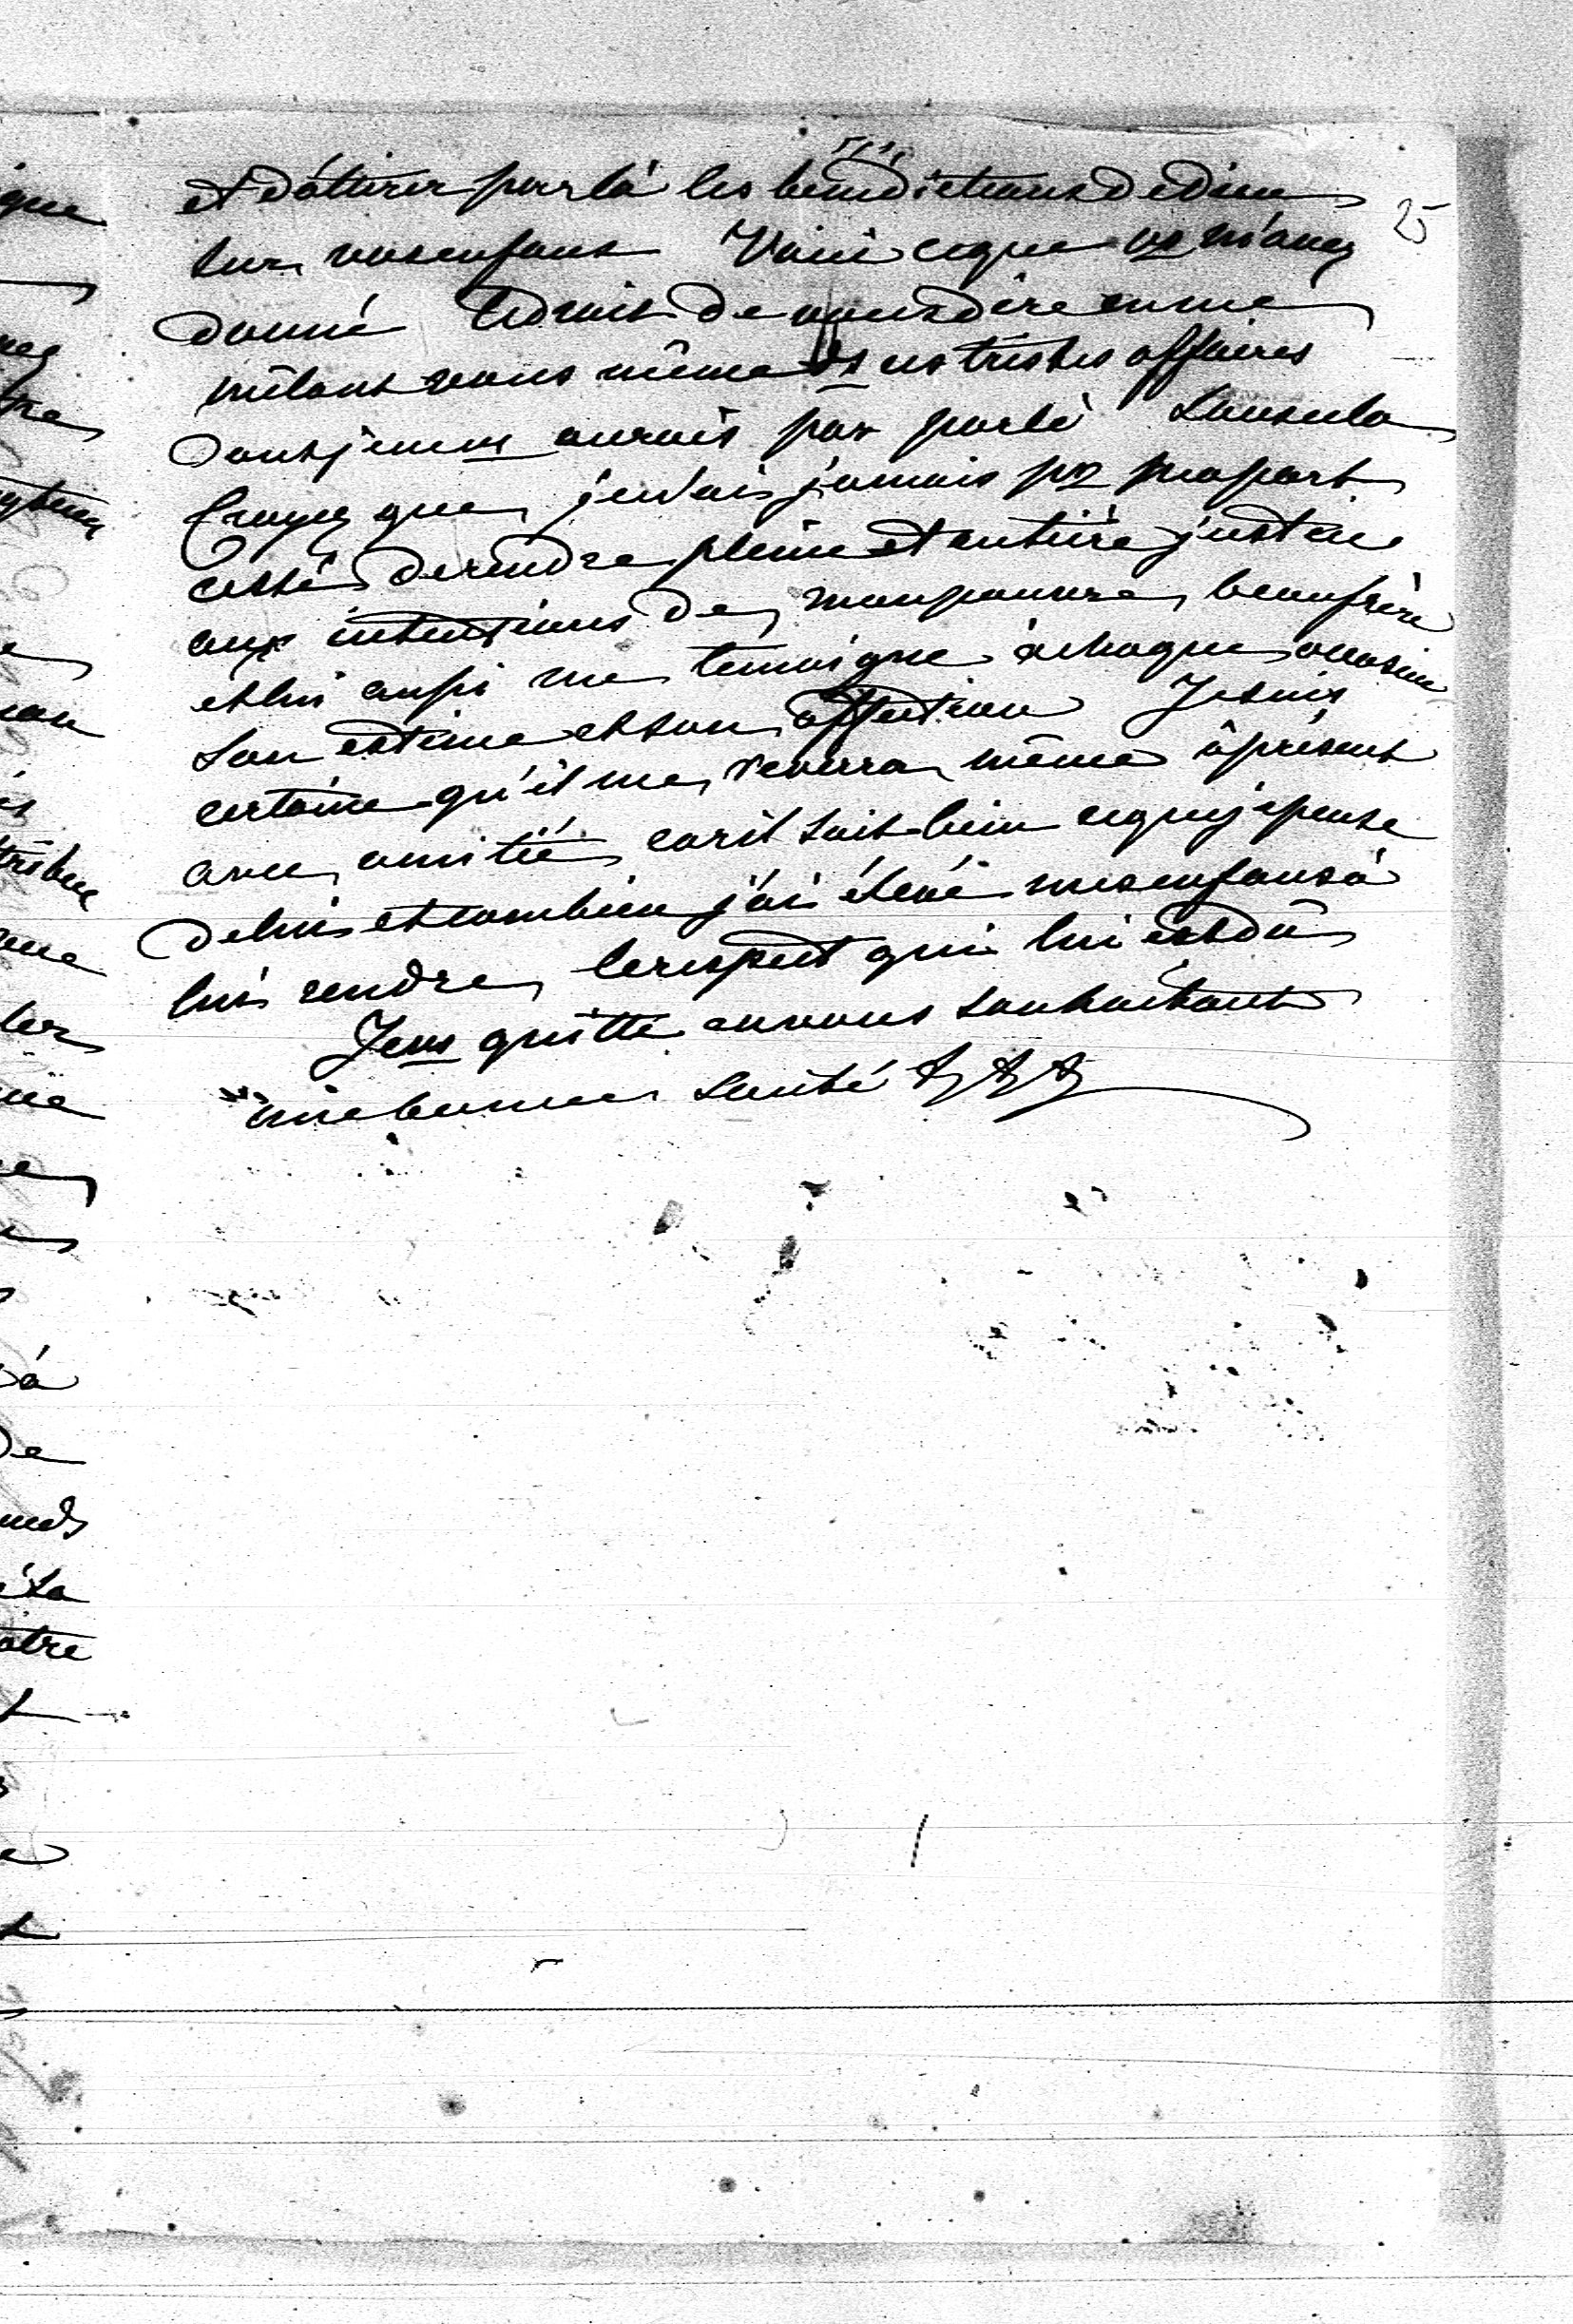 et d'attirer par là les bénédictions de dieu
25
sur vos enfans Voici ce que vs m'avez
donné le droit de vous dire en me
mêlant vous même ds ces tristes affaires
dont je ne vs aurois pas parlé sans cela
Croyez que je n'ais jamais pr ma part
cessé de rendre pleine et entière justice
aux intentions de mon pauvre beaufrère
et lui aussi me témoigne à chaque occasion
son estime et son affection Je suis
certaine qu'il me reverra même àprésent
avec amitié car il sait bien ce que je pense
de lui et combien j'ai élevé mes enfans à
lui rendre le respect qui lui est dû
Je vs quitte en vous souhaitant
une bonne santé